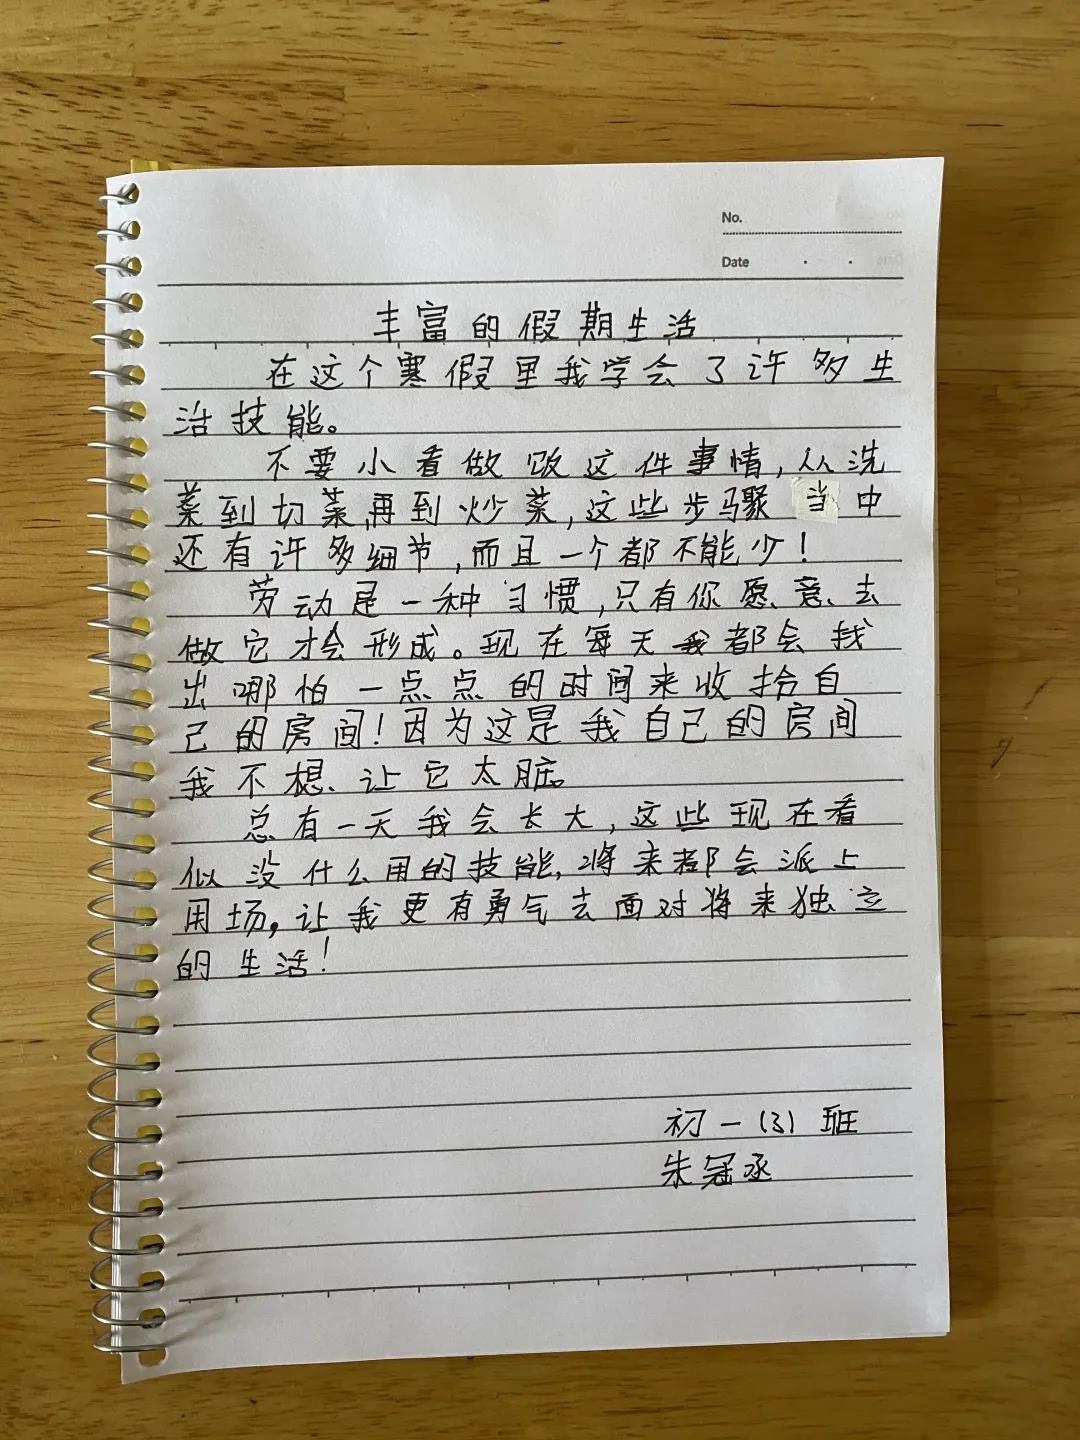 No.
Date
丰富的假期生活
在这个寒假里我学会了许多生
活技能。
不要小看做饭这件事情,从洗
菜到切菜,再到炒菜,这些步骤当中
还有许多细节,而且一个都不能少!
劳动是一种习惯,只有你愿意去
做它才会形成。现在每天我都会找
出哪怕一点点的时间来收拾自
己的房间!因为这是我自己的房间
我不想让它太脏。
总有一天我会长大,这些现在看
似没什么用的技能,将来都会派上
用场,让我更有勇气去面对将来独立
的生活!
初一(3)班
朱冠丞